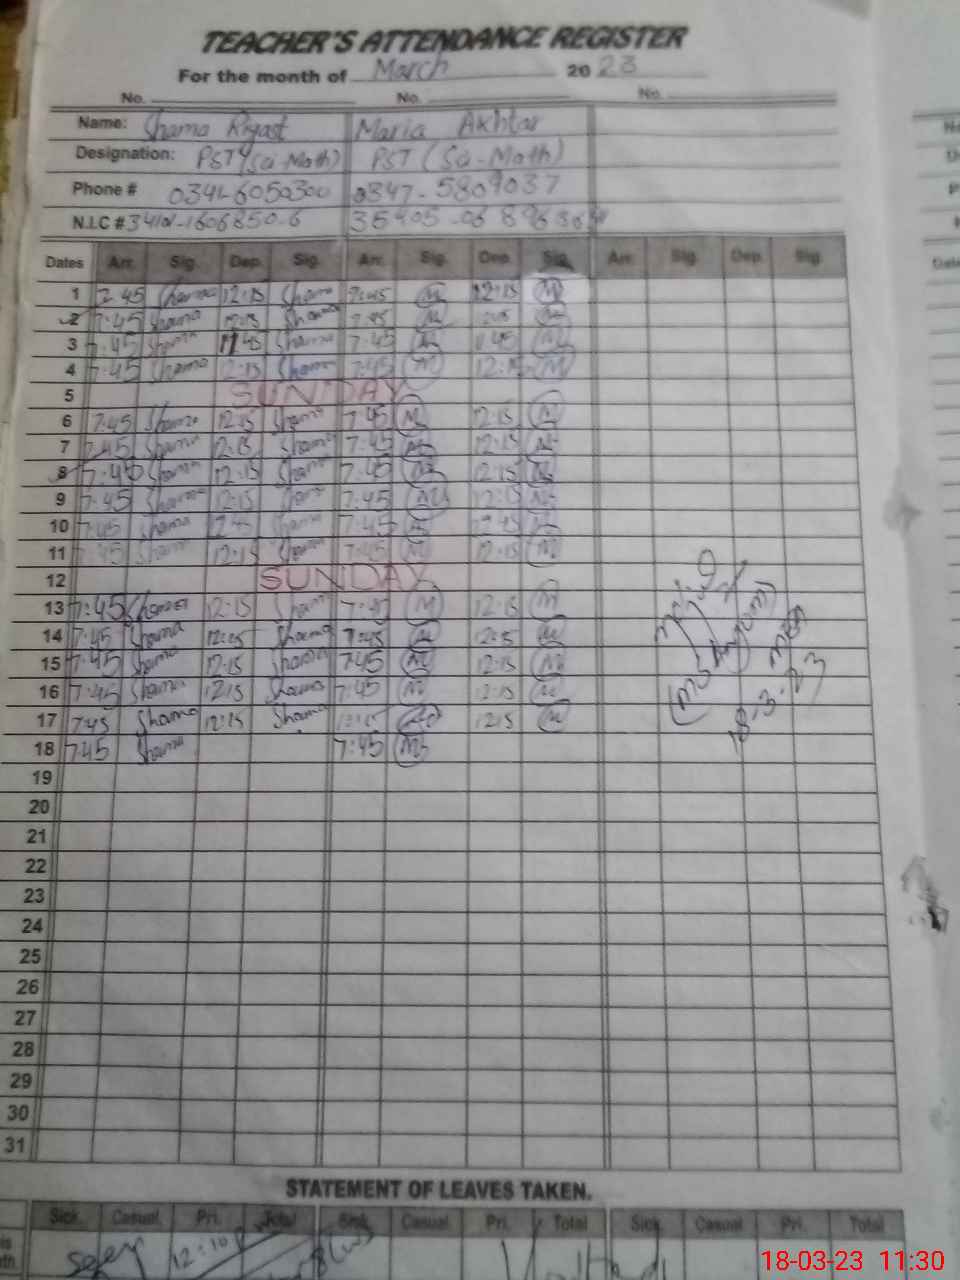 TEACHER'S ATTENDANCE REGISTER
For the month of March 2023
No. No. No.
Name: Shama Riyast Maria Akhtar
Designation: PST (Sci-Math) PST (Sci-Math)
Phone # 0341-6050300 0347-5809037
N.I.C #
Dates Arr. Sig. Dep. Sig. Arr. Sig. Dep. Sig. Arr. Sig. Dep. Sig.
1 7:45 Shama 12:15 Shama 7:45 M 12:15 M
2 7:45 Shama 12:15 Shama 7:45 M 12:15 M
3 7:45 Shama 11:45 Shama 7:45 M 11:45 M
4 7:45 Shama 12:15 Shama 7:45 M 12:15 M
5 SUNDAY
6 7:45 Shama 12:15 Shama 7:45 M 12:15 M
7 7:45 Shama 12:15 Shama 7:45 M 12:15 M
8 7:45 Shama 12:15 Shama 7:45 M 12:15 M
9 7:45 Shama 12:15 7:45 M 12:15 M
10 7:45 Shama Shama 7:45 M M
11 7:45 Shama 12:15 Shama 7:45 M 12:15 M
12 SUNDAY
13 7:45 Shama 12:15 Sham 7:45 M 12:15 M
14 7:45 Shama 12:15 Shama 7:45 M 12:15 M
15 7:45 Shama 12:15 Shama 7:45 M 12:15 M
16 7:45 Shama 12:15 Shama 7:45 M 12:15 M
17 7:45 Shama 12:15 Shama 12:15 M
18 7:45 Shama 7:45 M
MEA
18-3-23
19
20
21
22
23
24
25
26
27
28
29
30
31
STATEMENT OF LEAVES TAKEN.
Sick Casual Pri. Total Sick Casual Pri. Total Sick Casual Pri. Total
12:10
18-03-23 11:30